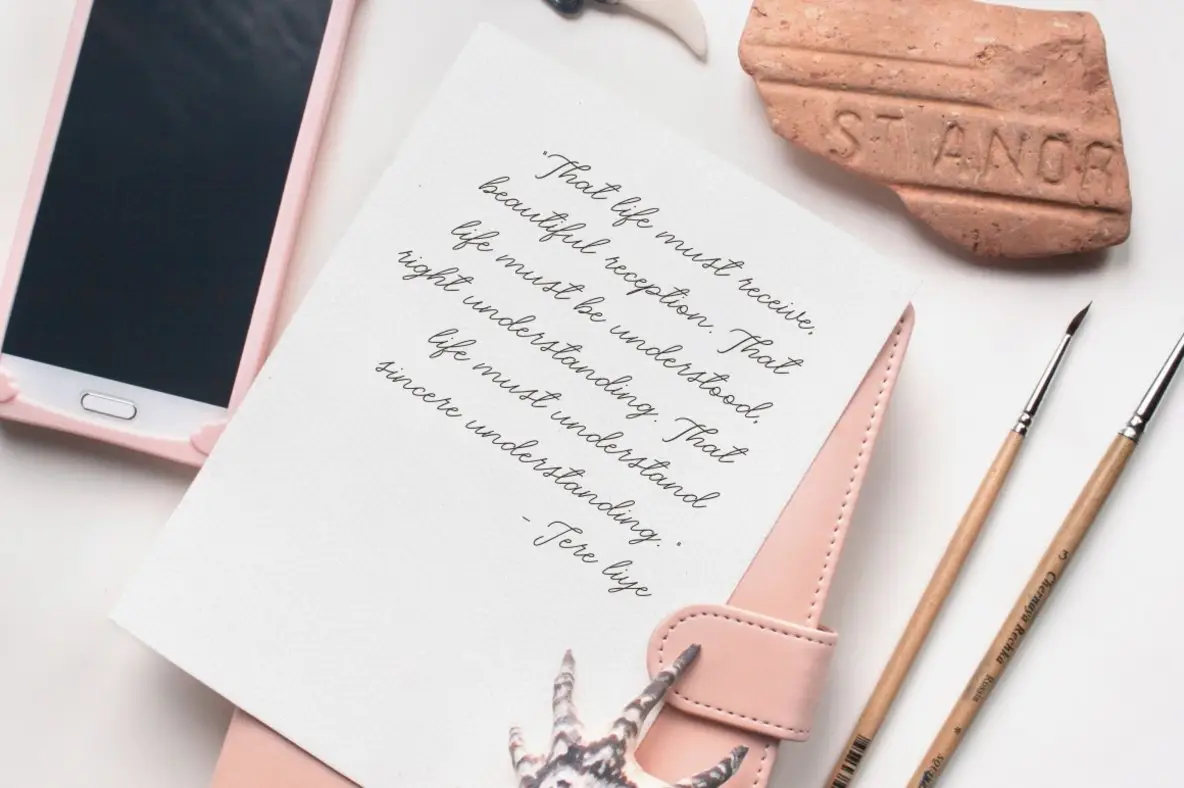 "That life must receive,
beautiful reception. That
life must be understood,
right understanding. That
life must understand
sincere understanding."
- Tere liye
ST ANOR
5
Chernaya Rechka
Russia